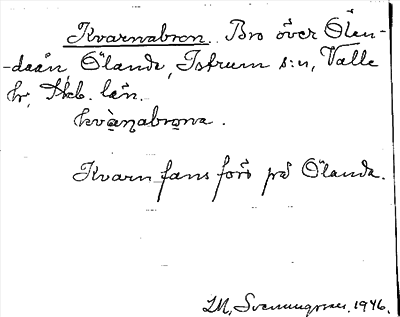 Kvarnabron. Bro över Ölan-
-daån Ölanda, Istrum s:n, Valle
hr, Skb. län.
kvàn̥abro̥na.
Kvarn fans förs på Ölanda.
LM, Svenungsson, 1946.